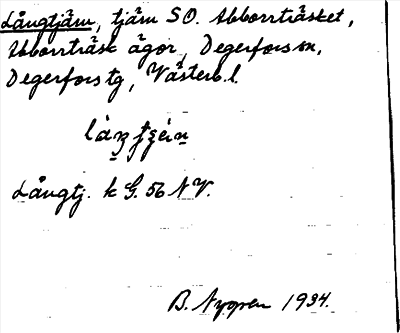 Långtjärn, tjärn SO. Abborrträsket,
Abborrträsk ägor, Degerfors sn,
Degerfors tg, Västerb. l.
Långtj. k G. 56 NV.
B. Nygren 1934.